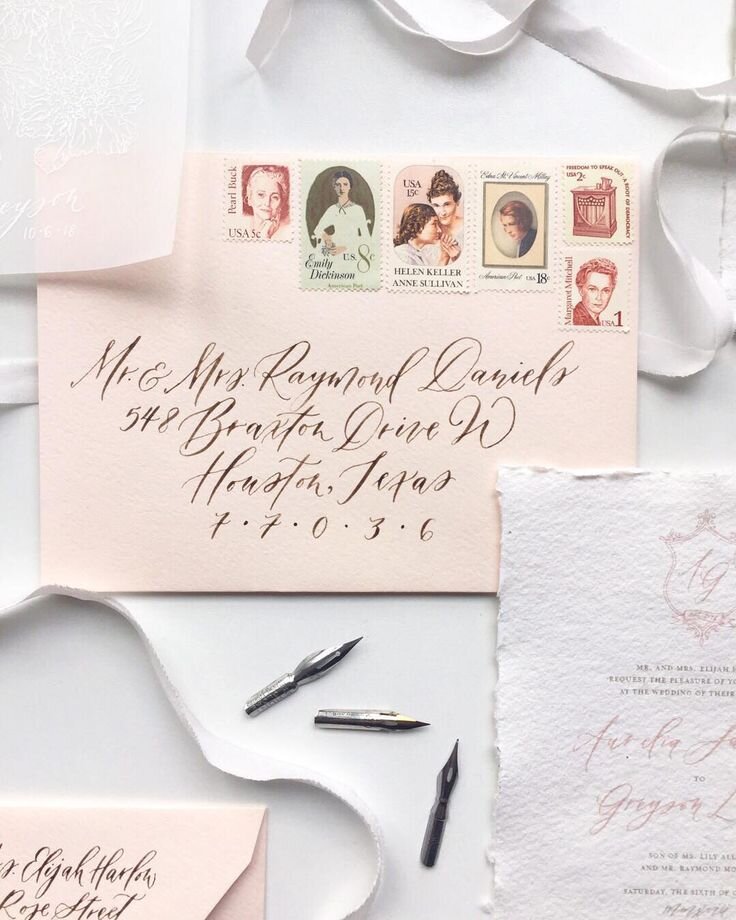 10.6.18
Pearl Buck
USA 5c
U.S. 8c
Emily
Dickinson
American Poet
USA
15c
HELEN KELLER
ANNE SULLIVAN
Edna St. Vincent Millay
American Poet USA 18c
FREEDOM TO SPEAK OUT A ROOT OF DEMOCRACY
USA
2c
Margaret Mitchell
USA 1
Mr. & Mrs. Raymond Daniels
548 Braxton Drive W
Houston, Texas
7 · 7 · 0 · 3 · 6
AG
MR. AND MRS. ELIJAH
REQUEST THE PLEASURE OF
AT THE WEDDING OF THEIR
Aurelia
TO
Greyson
SON OF MS. LILY
AND MR. RAYMOND
SATURDAY, THE SIXTH OF
Elijah Harlow
Rose Street